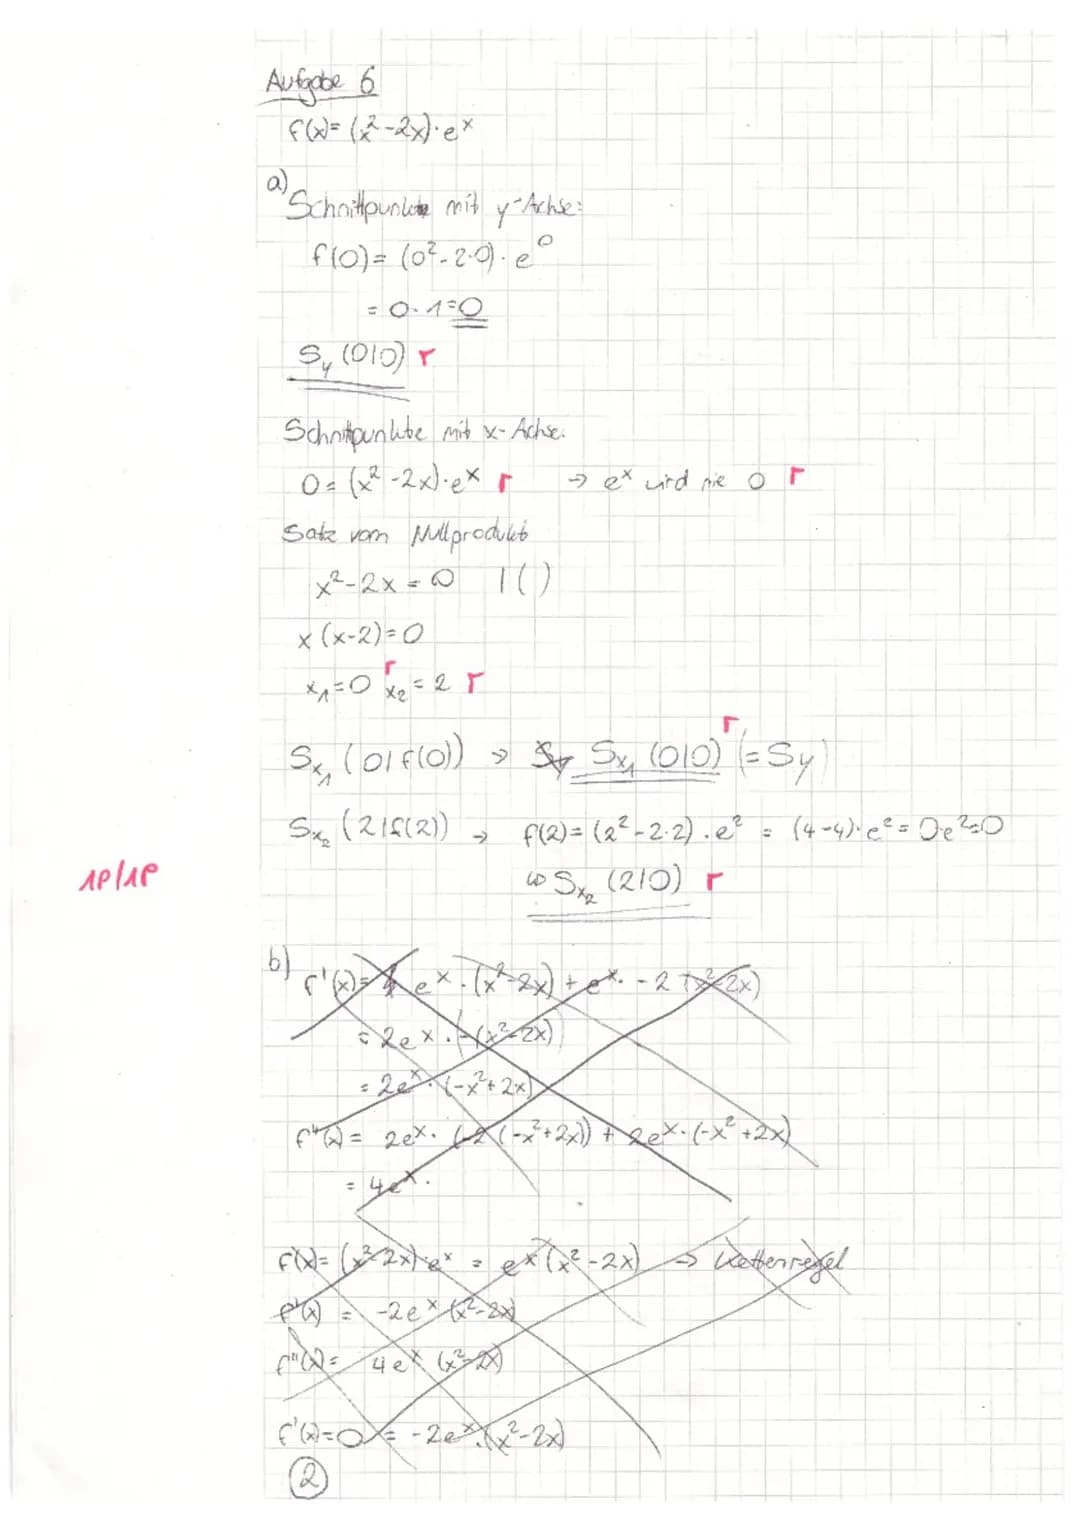 Aufgabe 6
f(x)= (x²-2x)·eˣ
a)
Schnittpunkte mit y-Achse:
f(0)= (0²-2·0)·e⁰
= 0·1=0
S_y (0|0) r
Schnittpunkte mit x-Achse:
0= (x²-2x)·eˣ r → eˣ wird nie 0 r
Satz vom Nullprodukt
x²-2x = 0 | ( )
x (x-2)=0
x₁=0 r x₂=2 r
S_x₁ (0|f(0)) → S_x₁ (0|0) r (= S_y)
S_x₂ (2|f(2)) → f(2)= (2²-2·2)·e² = (4-4)·e² = 0·e²=0
1P/1P
↳ S_x₂ (2|0) r
b)
f'(x)= eˣ·(x²-2x) + eˣ·-2 (x²-2x)
= 2eˣ·(-(x²-2x))
= 2eˣ·(-x²+2x)
f''(x)= 2eˣ·(-2(-x²+2x)) + 2eˣ·(-x²+2x)
= 4eˣ·
f(x)= (x²-2x)·eˣ = eˣ(x²-2x) → Kettenregel
f'(x) = -2eˣ (x²-2x)
f''(x)= 4eˣ (x²-2x)
f'(x)=0 = -2eˣ·(x²-2x)
2